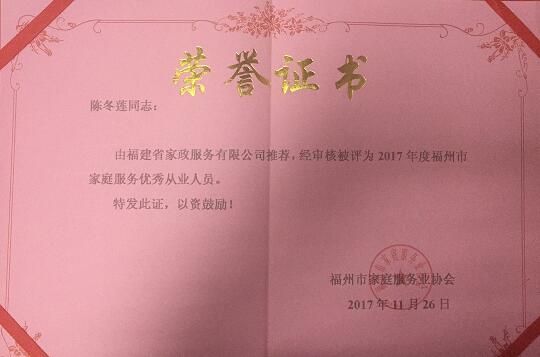 荣誉证书
陈冬莲同志：
由福建省家政服务有限公司推荐，经审核被评为 2017 年度福州市
家庭服务优秀从业人员。
特发此证，以资鼓励！
福州市家庭服务业协会
2017 年 11 月 26 日